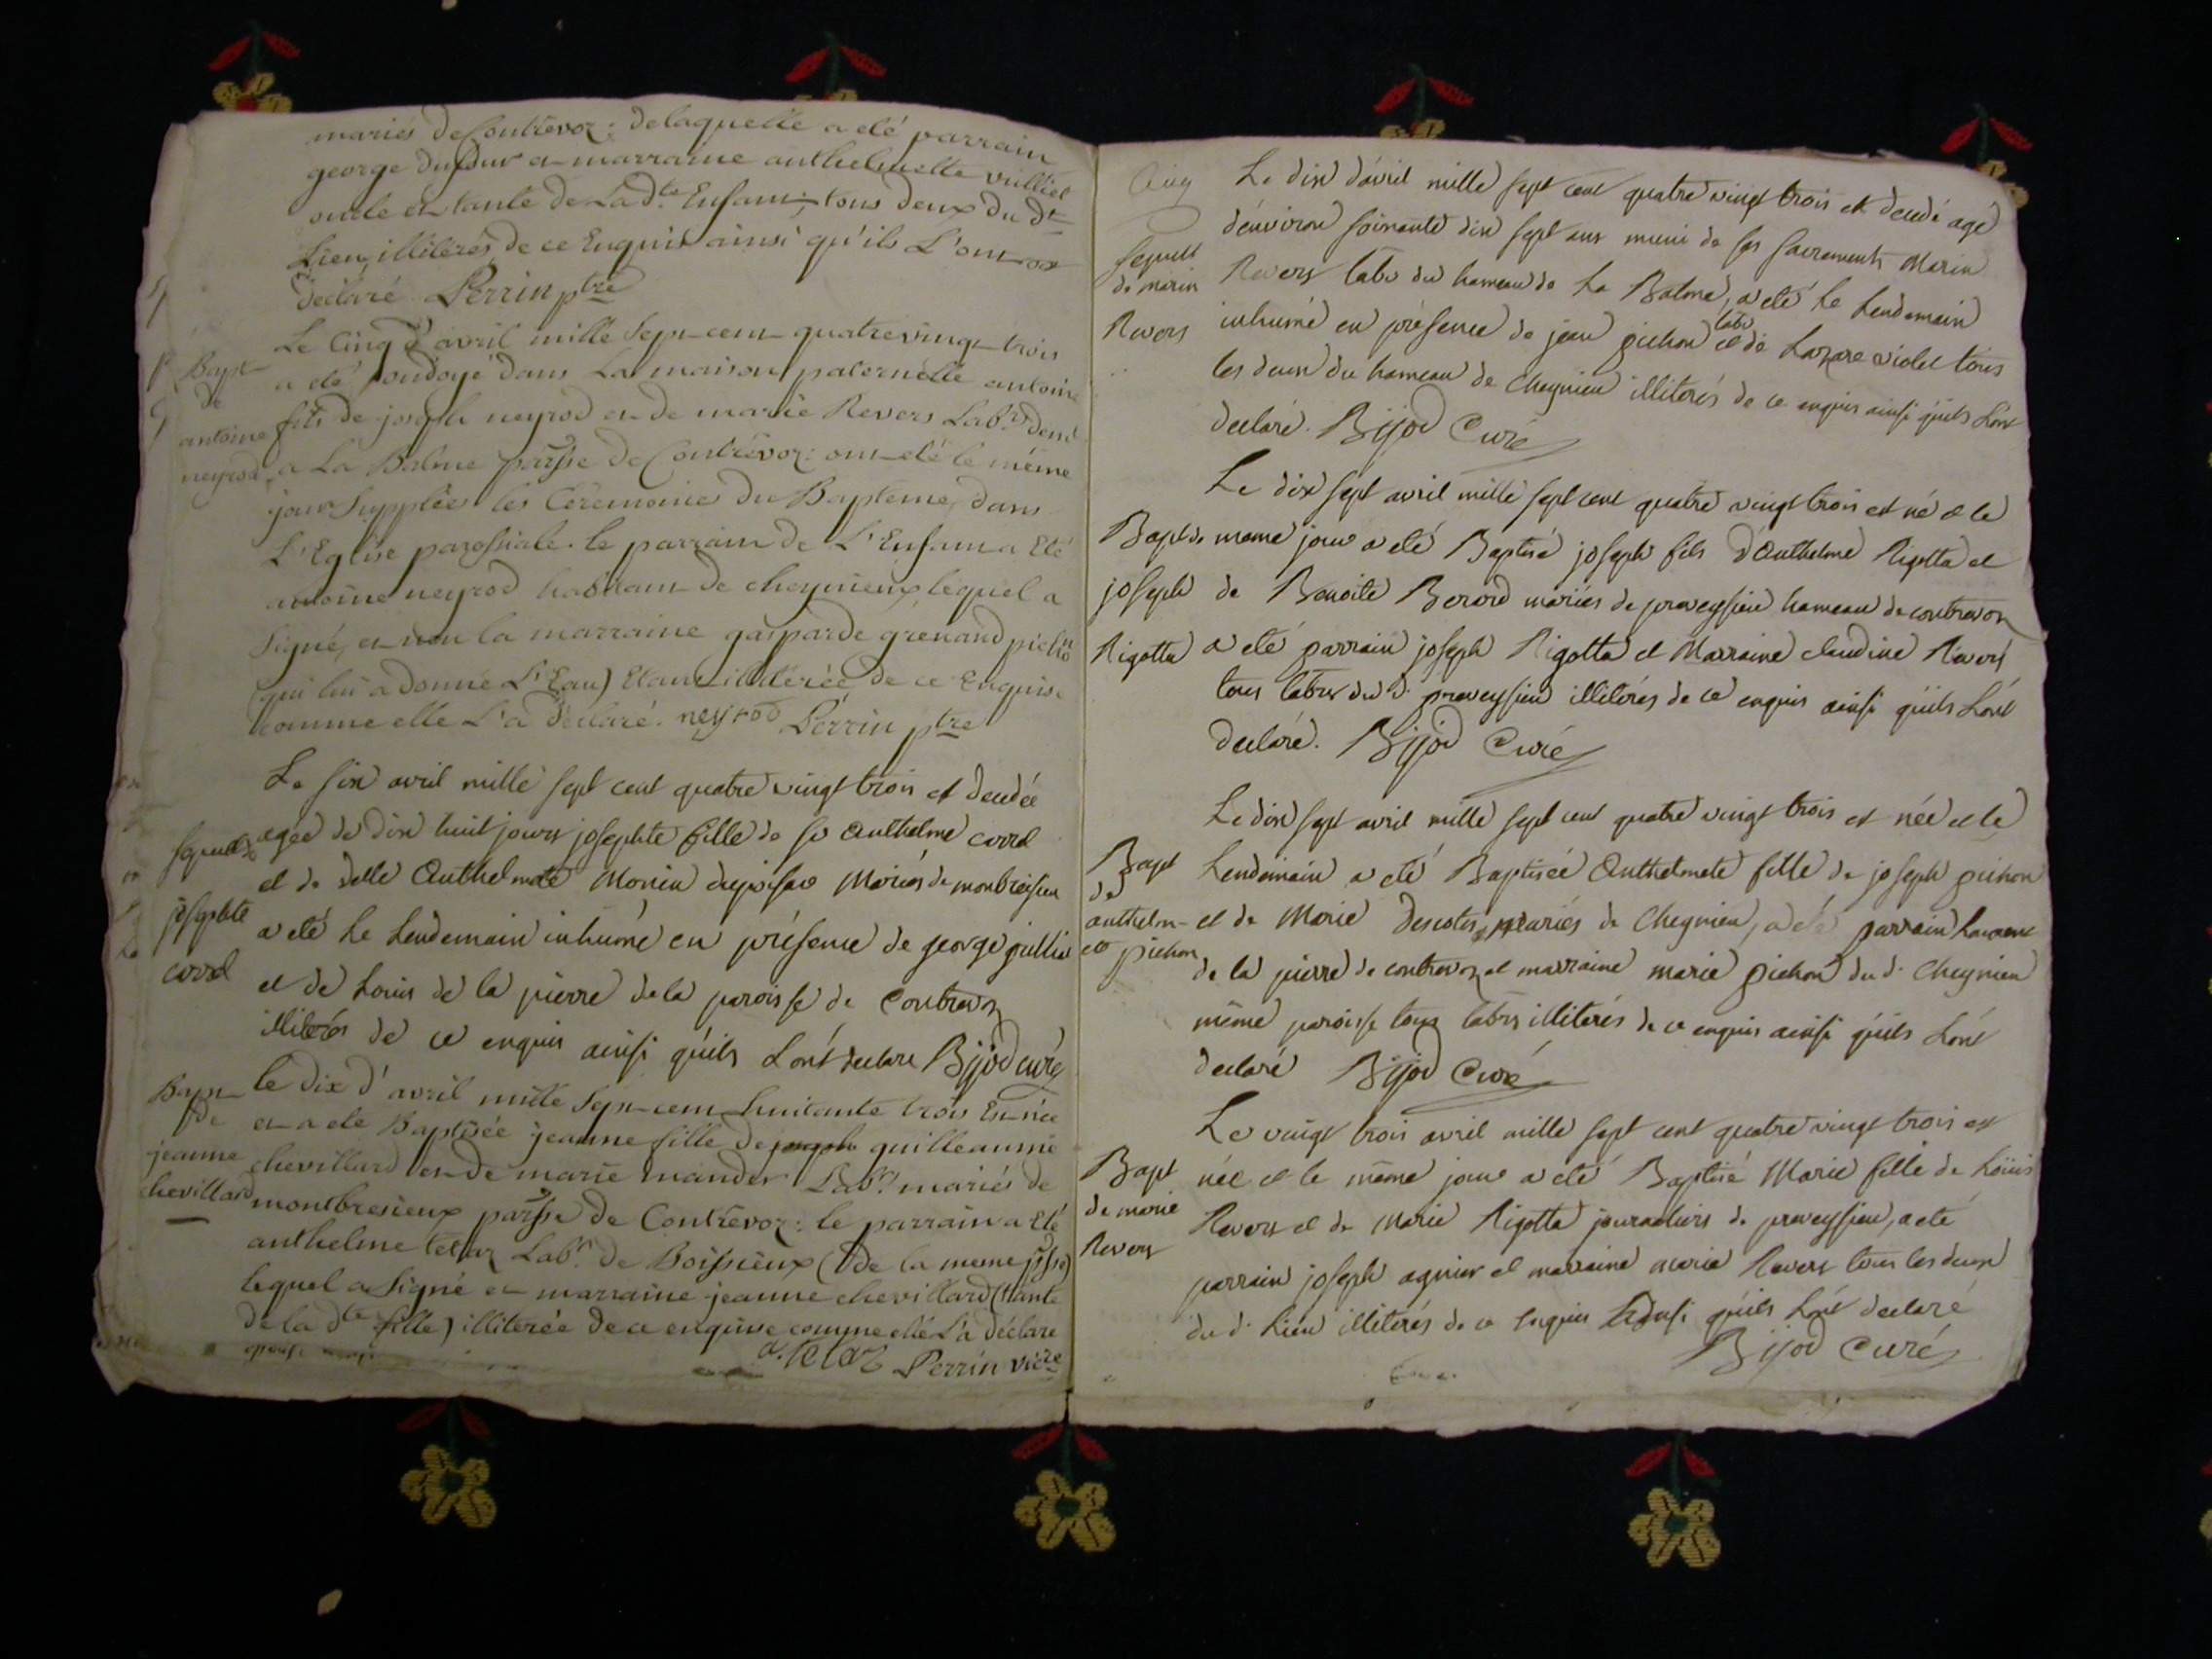 mariés de Contrevoz: de laquelle a été parrain
george dufour et marraine anthelmette vulliet
oncle et tante de la dte Enfant; tous deux du dt
Lieu, illitérés de ce Enquis ainsi qu'ils L'ont
déclaré Perrin ptre
Bapt
de
antoine
neyrod
Le Cinq d'avril mille Sept-cent quatrevingt trois
a été ondoyé dans La maison paternelle antoine
fils de joseph neyrod et de marie Revers Labrs demt
a La Balme parsse de Contrévoz: ont été le même
jour Supplées les Cérémonies du Bapteme, dans
L'Eglise paroissiale. le parrain de L'Enfant a Eté
antoine neyrod habitant de cheynieux lequel a
Signé, et non la marraine gasparde grenand pichon
(qui lui a donné L'Eau) Etant illitérée de ce Enquise
comme elle L'a déclaré. neyrod Perrin ptre
sepult de
josephte
corrd
Le six avril mille sept cent quatre vingt trois est decedée
agée de dix huit jours josephte fille de sr Anthelme corrd
et de delle Anthelmette Monin mariés de montbresieu
a été le lendemain inhumé en présence de george
et de Louis de la pierre de la paroisse de Contrevoz
illiterés de ce enquis ainsi quils L'ont declare Bijod curé
Bapt
de
jeanne
chevillard
le dix d'avril mille Sept-cent huitante trois Est née
et a été Baptisée jeanne fille de joseph guilleaume
chevillard et de marie mander Labrs mariés de
montbresieux parsse de Contrevoz: le parrain a Eté
anthelme tetaz Labr. de Boissieux (de la meme psse)
lequel a Signé et marraine jeanne chevillard (tante
de la dte fille) illiterée de ce enquise comme elle L'a déclaré
a. tetaz Perrin vicre
sepult
de marin
Revers
Le dix d'avril mille sept cent quatre vingt trois est decedé agé
d'environ soixante dix sept ans muni de ses sacrements Marin
Revers labr du hameau de La Balme, a été le lendemain
inhumé en présence de jean pichon labr et de Lazare violet tous
les deux du hameau de Cheynieu illiterés de ce enquis ainsi quils L'ont
declaré. Bijod Curé
Bapt de
joseph
Rigotta
Le dix sept avril mille sept cent quatre vingt trois est né et le
meme jour a été Baptisé joseph fils d'Anthelme Rigotta et
de Benoite Berard mariés de preveyssieu hameau de contrevoz
a été parrain joseph Rigotta et Marraine claudine Revers
tous labrs du d. preveyssieu illiterés de ce enquis ainsi quils L'ont
declaré. Bijod Curé
Bapt
de
anthelm-
ete pichon
Le dix sept avril mille sept cent quatre vingt trois est née et le
Lendemain a été Baptisée Anthelmete fille de joseph pichon
et de Marie Descotes mariés de Cheynieu, a été parrain Laurent
de la pierre de contrevoz et marraine marie pichon du d. Cheynieu
même paroisse tous labrs illiterés de ce enquis ainsi quils L'ont
declaré Bijod Curé
Bapt
de marie
Revers
Le vingt trois avril mille sept cent quatre vingt trois est
née et le même jour a été Baptisé Marie fille de Loüis
Revers et de Marie Rigotta journaliers de preveyssieu, a eté
parrain joseph agnier et marraine marie Revers tous les deux
du d. Lieu illiterés de ce enquis ainsi quils L'ont declaré
Bijod Curé